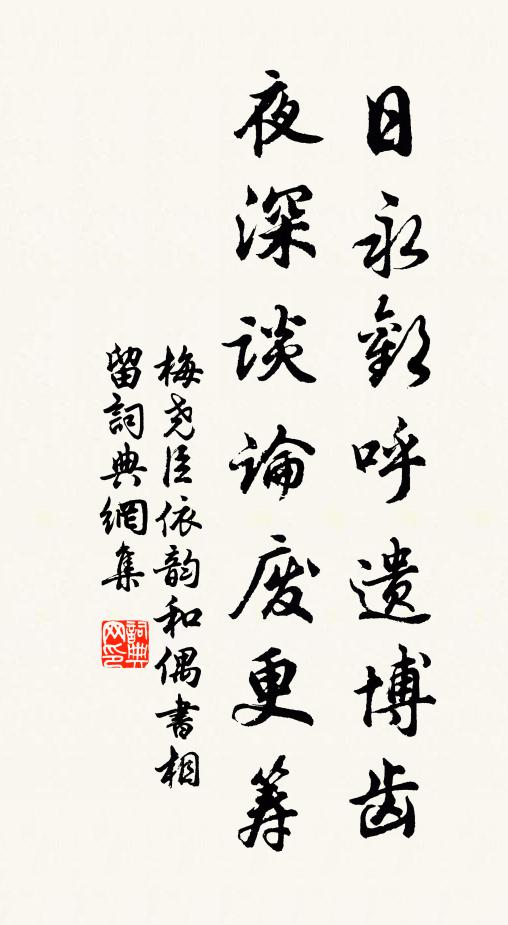 日永歡呼遗博齿
夜深谈論废更筹
梅尧臣依韵和偶書相
留詞典網集
詞典
网印